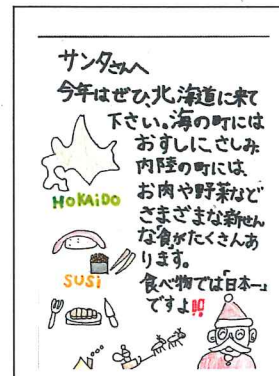 サンタさんへ
今年はぜひ、北海道に来て
下さい。海の町には
おすしに、さしみ
内陸の町には、
お肉や野菜など
さまざまな新せん
な食がたくさんあ
ります。
食べ物では「日本一」
ですよ!!
HOKAiDO
SUSi